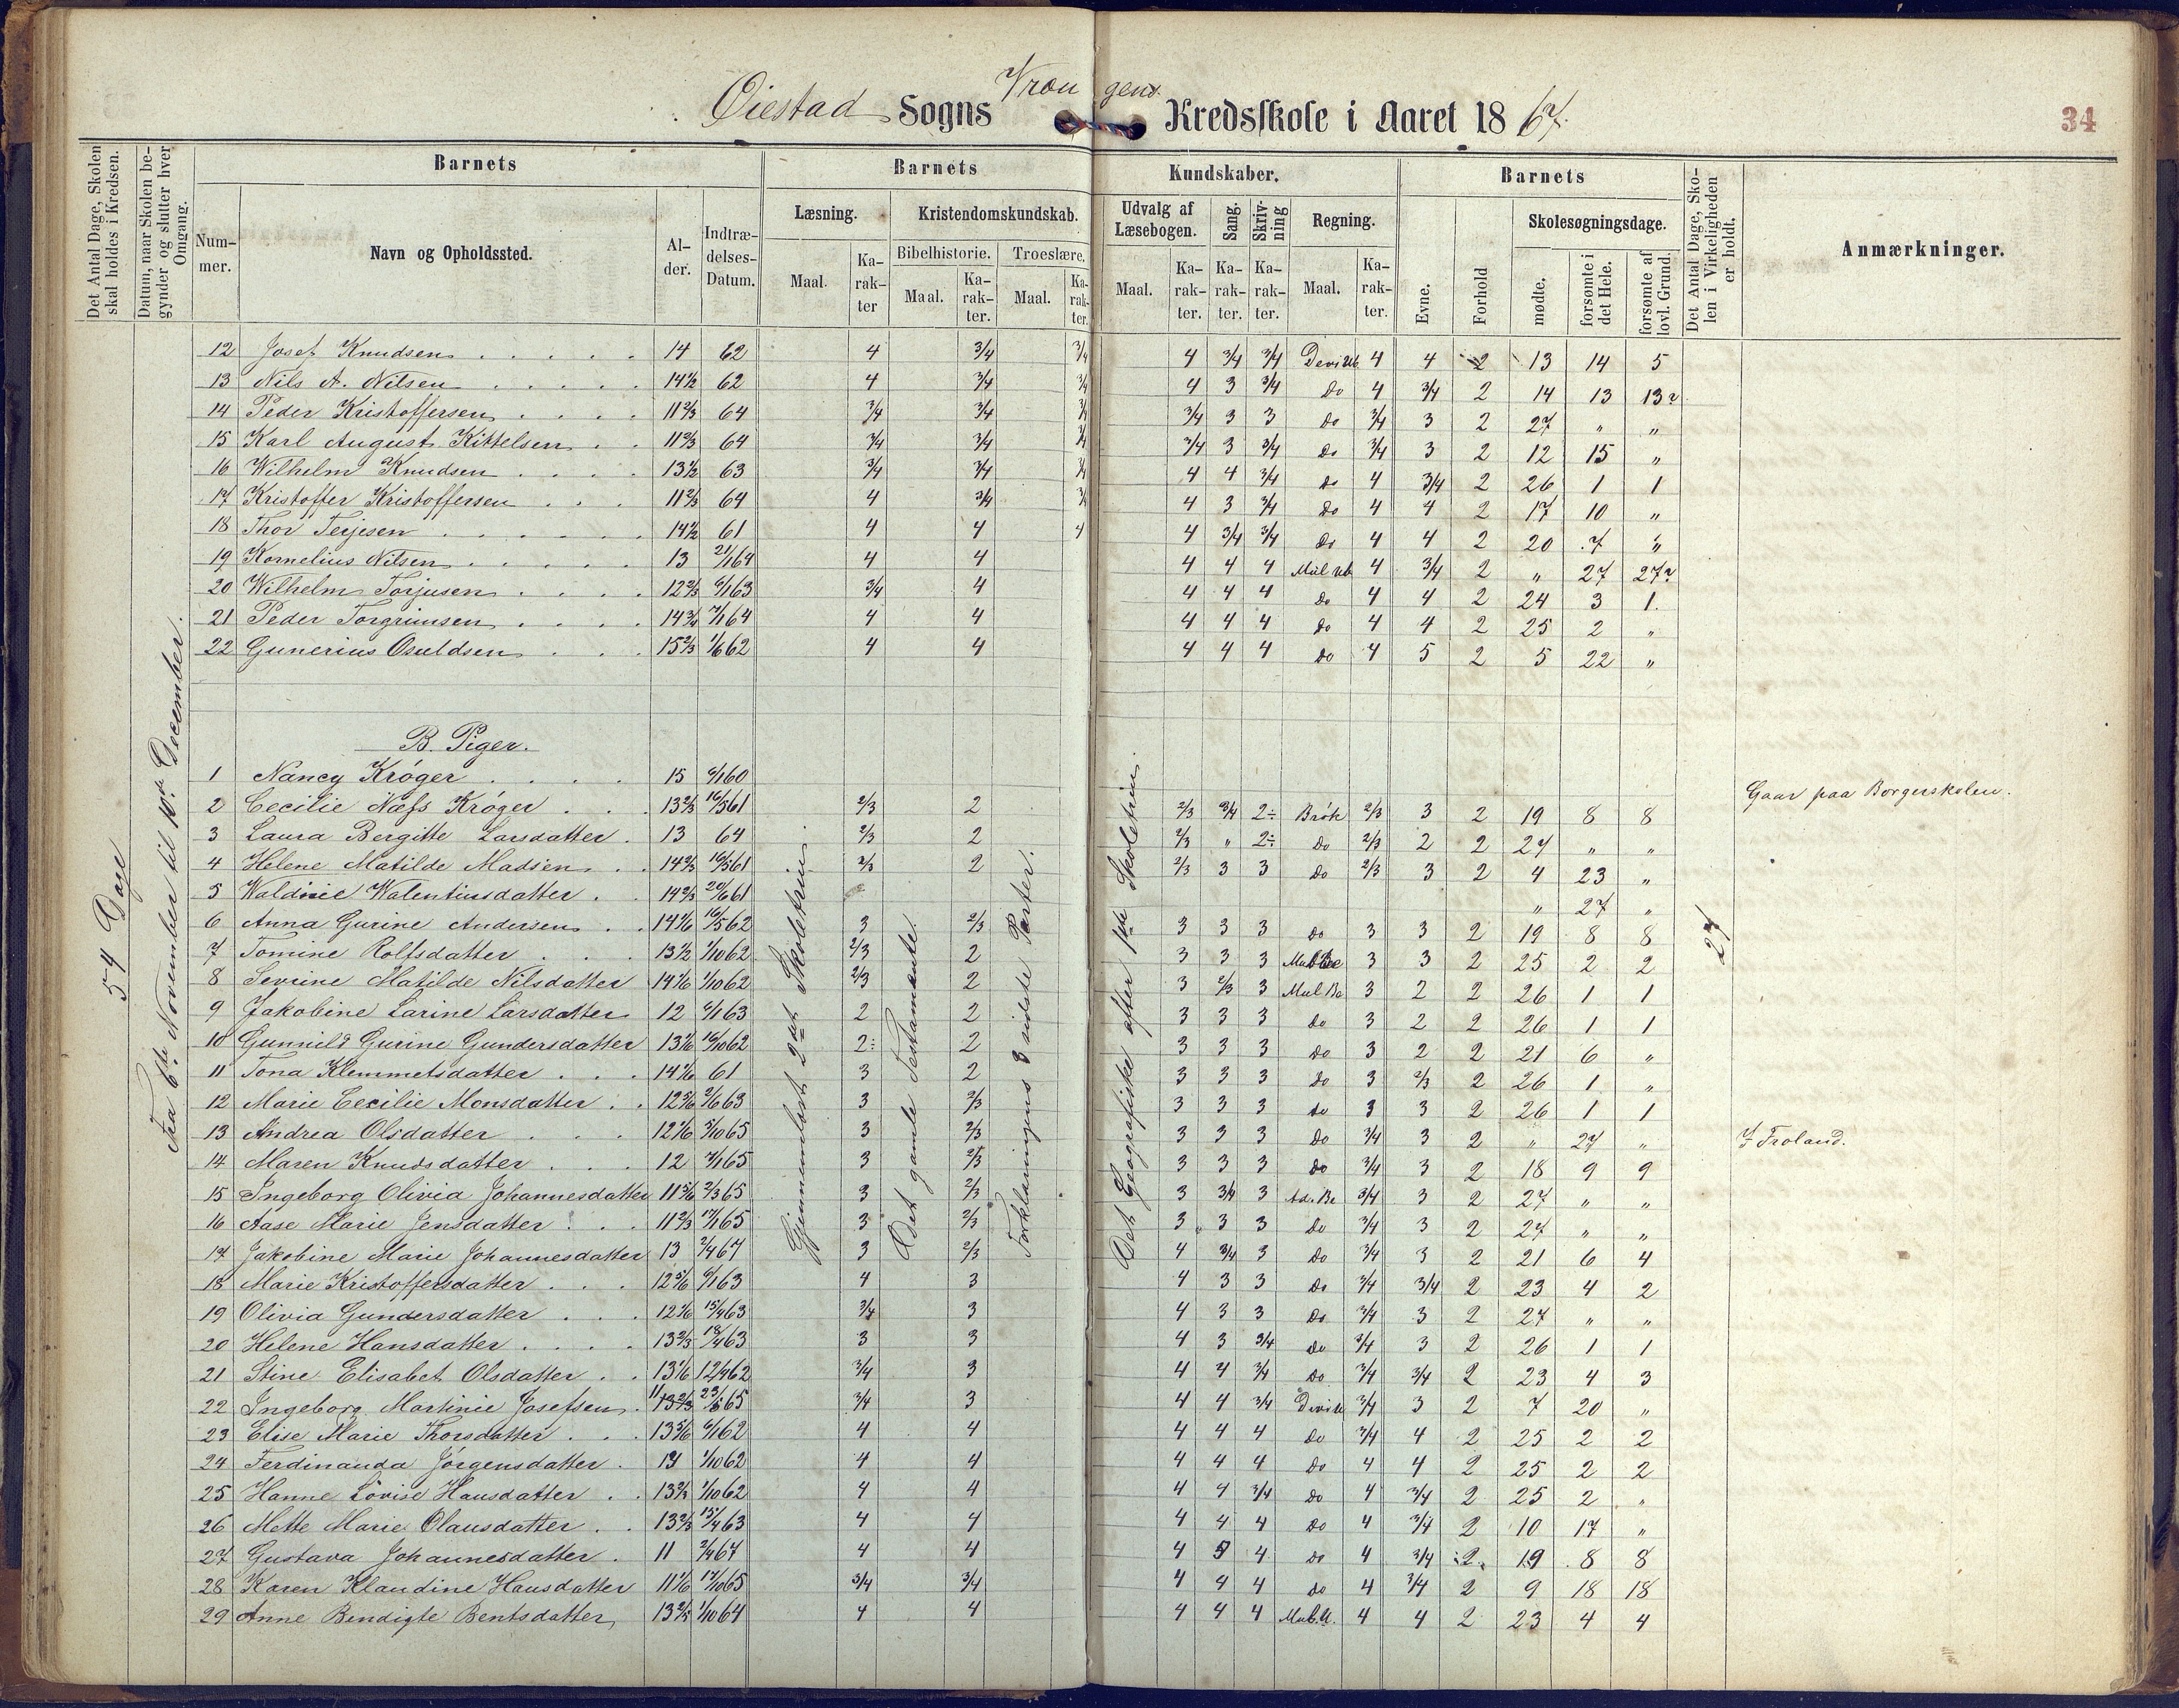 Øiestad Sogns Vrengens Kredsskole i Aaret 1867.
34
Det Antal Dage, Skolen skal holdes i Kredsen.
Datum, naar Skolen begynder og slutter hver Omgang.
Barnets
Barnets
Kundskaber.
Barnets
Det Antal Dage, Skolen i Virkeligheden er holdt.
Anmærkninger.
Nummer.
Navn og Opholdssted.
Alder.
Indtrædelses-Datum.
Læsning.
Kristendomskundskab.
Udvalg af Læsebogen.
Sang.
Skrivning
Regning.
Evne.
Forhold
Skolesøgningsdage.
Bibelhistorie.
Troeslære.
Maal.
Karakter
Maal.
Karakter.
Maal.
Karakter.
Maal.
Karakter.
Karakter.
Karakter.
Maal.
Karakter.
mødte.
forsømte i det Hele.
forsømte af lovl. Grund.
54 Dage
Fra 6te November til 10de December.
Gjennemlæst 2det Skoletrin.
Det gamle Testamente.
Forklaringens 3 sidste Parter.
Det Geografiske efter 1ste Skoletrin.
27
12 Josef Knudsen 14 62 4 3/4 3/4 4 3/4 3/4 4 4 2 13 14 5
13 Nils A. Nilsen 14½ 62 4 3/4 3/4 4 3 3/4 Do 4 3/4 2 14 13 13
14 Peder Kristoffersen 11 2/3 64 3/4 3/4 3/4 3/4 3 3 do 3/4 3 2 27 " "
15 Karl August Kittelsen 11 2/3 64 3/4 3/4 3/4 3/4 3 3/4 Do 3/4 3 2 12 15 "
16 Wilhelm Knudsen 13½ 63 3/4 3/4 3/4 4 4 3/4 do 4 3/4 2 26 1 1
17 Kristoffer Kristoffersen 11 2/3 64 4 3/4 3/4 4 3 3/4 Do 4 4 2 17 10 "
18 Thor Terjesen 14½ 61 4 4 4 4 3/4 3/4 Do 4 4 2 20 7 "
19 Kornelius Nilsen 13 21/1 64 4 4 4 4 4 Mul Ub 4 3/4 2 " 27 27
20 Wilhelm Torjusen 12 2/3 6/1 63 3/4 4 4 4 4 do 4 4 2 24 3 1.
21 Peder Torgrimsen 14 3/4 7/1 64 4 4 4 4 4 do 4 4 2 25 2 "
22 Gunerius Osuldsen 15 2/3 1/6 62 4 4 4 4 4 do 4 5 2 5 22 "
B. Piger.
1 Nancy Krøger 15 6/1 60 Gaar paa Borgerskolen.
2 Cecilie Næss Krøger 13 2/3 16/5 61 2/3 2 2/3 3/4 2÷ Brøk 2/3 3 2 19 8 8
3 Laura Bergitte Larsdatter 13 64 2/3 2 2/3 " 2÷ Do 2/3 2 2 27 " "
4 Helene Matilde Madsen 14 2/3 16/5 61 2/3 2 2/3 3 3 Do 2/3 3 2 4 23 "
5 Waldine Walentinsdatter 14 2/3 20/6 61 " 27 "
6 Anna Gurine Andersen 14 1/6 16/5 62 3 2/3 3 3 3 do 3 3 2 19 8 8
7 Tomine Rolfsdatter 13½ 1/10 62 2/3 2 3 3 3 3 3 2 25 2 2
8 Severine Matilde Nilsdatter 14 1/6 1/10 62 2/3 2 3 2/3 3 Mul Be 3 2 2 26 1 1
9 Jakobine Larine Larsdatter 12 6/1 63 2 2 3 3 3 do 3 2 2 26 1 1
10 Gunnild Gurine Gundersdatter 13 1/6 16/10 62 2÷ 2 3 3 3 Do 3 2 2 21 6 "
11 Tona Klemmetsdatter 14 1/6 61 3 2 3 3 3 Do 3 2/3 2 26 1 "
12 Marie Cecilie Monsdatter 12 5/6 2/6 63 3 2/3 3 3 3 do 3 3 2 26 1 1
13 Andrea Olsdatter 12 1/6 3/10 65 3 2/3 3 3 3 Do 3/4 3 2 " 27 " I Froland.
14 Maren Knudsdatter 12 7/1 65 3 2/3 3 3 3 Do 3/4 3 2 18 9 9
15 Ingeborg Olivia Johannesdatter 11 5/6 2/3 65 3 2/3 3 3/4 3 Ad. Be 3/4 3 2 27 " "
16 Aase Marie Jensdatter 11 2/3 17/1 65 3 2/3 3 3 3 Do 3/4 3 2 27 " "
17 Jakobine Marie Johannesdatter 13 2/4 67 3 2/3 4 3/4 3 Do 3/4 3 2 21 6 4
18 Marie Kristoffersdatter 12 5/6 6/1 63 4 3 4 3 3 Do 3/4 3/4 2 23 4 2
19 Olivia Gundersdatter 12 1/6 15/4 63 3/4 3 4 3 3 Do 3/4 3 2 27 " "
20 Helene Hansdatter 13 2/3 18/4 63 3 3 4 3 3/4 do 3/4 3 2 26 1 1
21 Stine Elisabet Olsdatter 13 1/6 12/4 62 3/4 3 4 4 3/4 Do 3/4 3/4 2 23 4 3
22 Ingeborg Martinie Josefsen 11 23/5 65 3/4 3 4 4 3/4 3/4 3 2 7 20 "
23 Elise Marie Thorsdatter 13 5/6 6/1 62 4 4 4 4 4 do 3/4 4 2 25 2 2
24 Ferdinanda Jørgensdatter 1/10 62 4 4 4 4 4 Do 4 4 2 25 2 2
25 Hanne Lovise Hansdatter 13 2/3 1/10 62 4 4 4 4 3/4 Do 4 3/4 2 25 2 "
26 Mette Marie Olausdatter 13 2/3 15/4 63 4 4 4 4 4 Do 4 3/4 2 10 17 "
27 Gustava Johannesdatter 11 2/4 67 4 4 4 5 4 Do 4 3/4 2 19 8 8
28 Karen Klaudine Hansdatter 11 1/6 17/10 65 3/4 3/4 4 4 4 do 4 3/4 2 9 18 18
29 Anne Bendigte Bentsdatter 13 2/3 1/10 64 4 4 4 4 4 Mul. U. 4 4 2 23 4 4